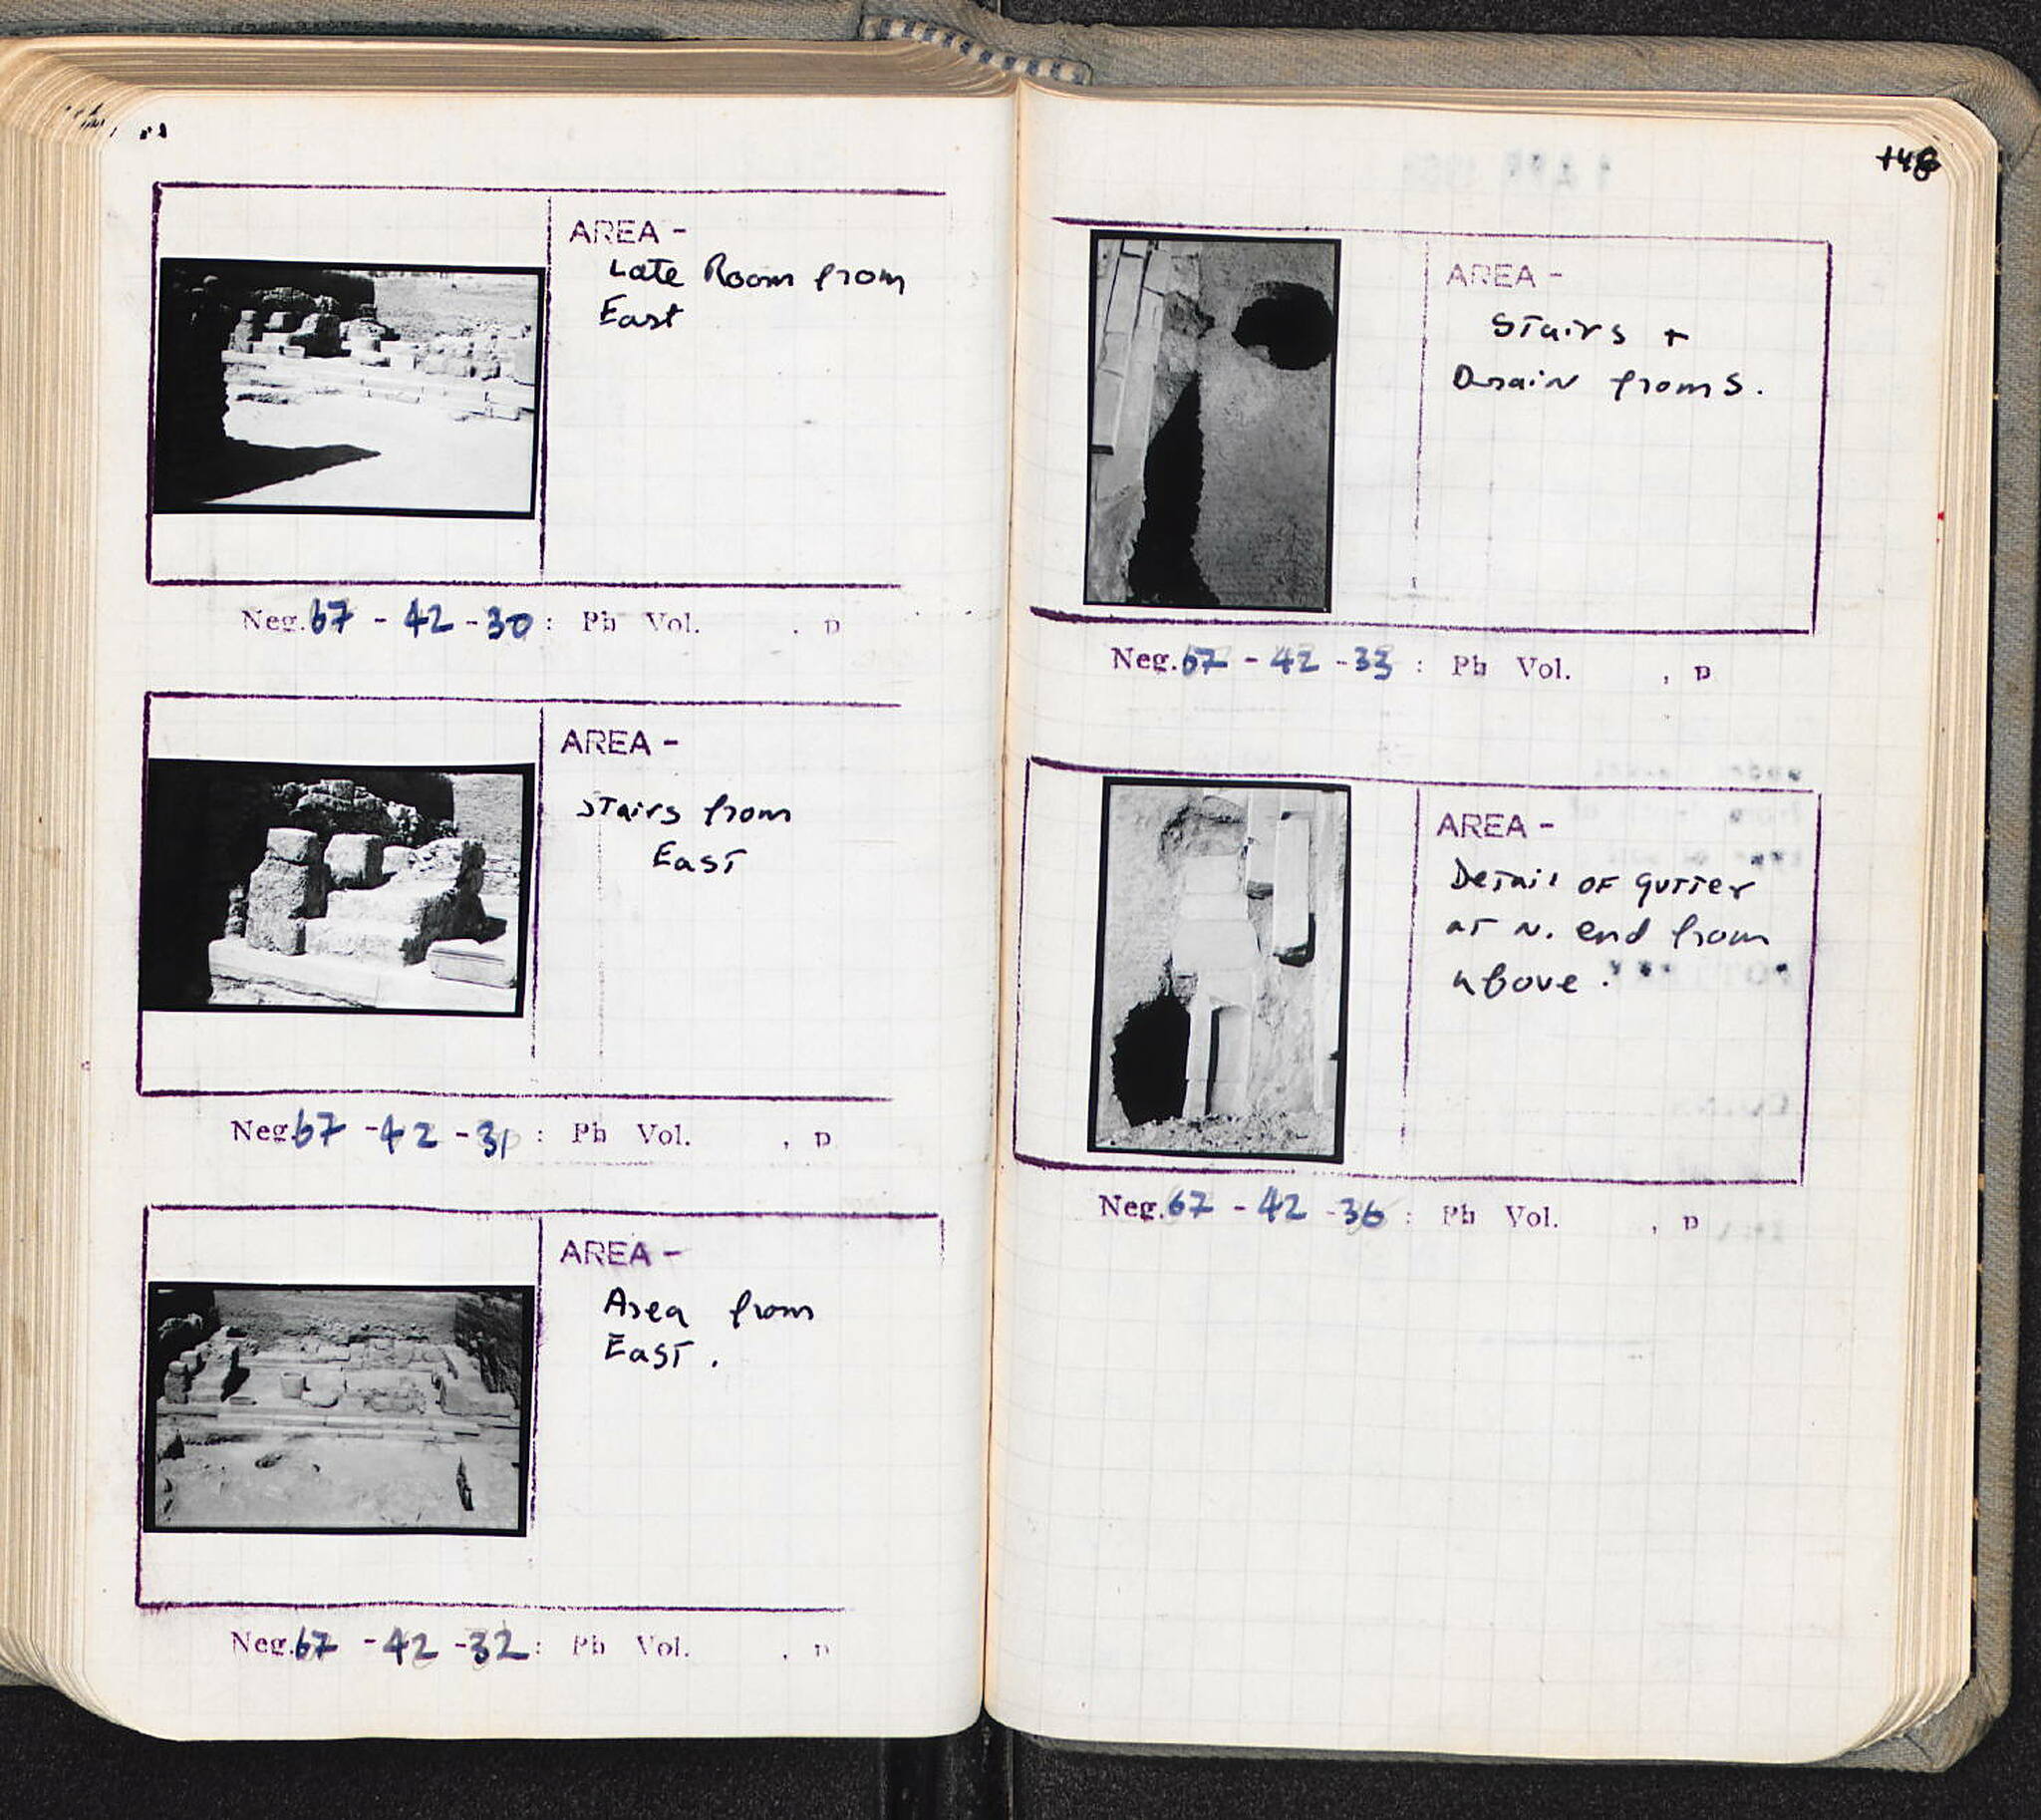 AREA -
Late Room from
East
Neg. 67 - 42 - 30 : Ph Vol. , p
AREA -
Stairs from
East
Neg. 67 - 42 - 31 : Ph Vol. , p
AREA -
Area from
East.
Neg. 67 - 42 - 32 : Ph Vol. , p
AREA -
Stairs +
Drain from S.
Neg. 67 - 42 - 33 : Ph Vol. , p
AREA -
Detail of gutter
at N. end from
above.
Neg. 67 - 42 - 36 : Ph Vol. , p